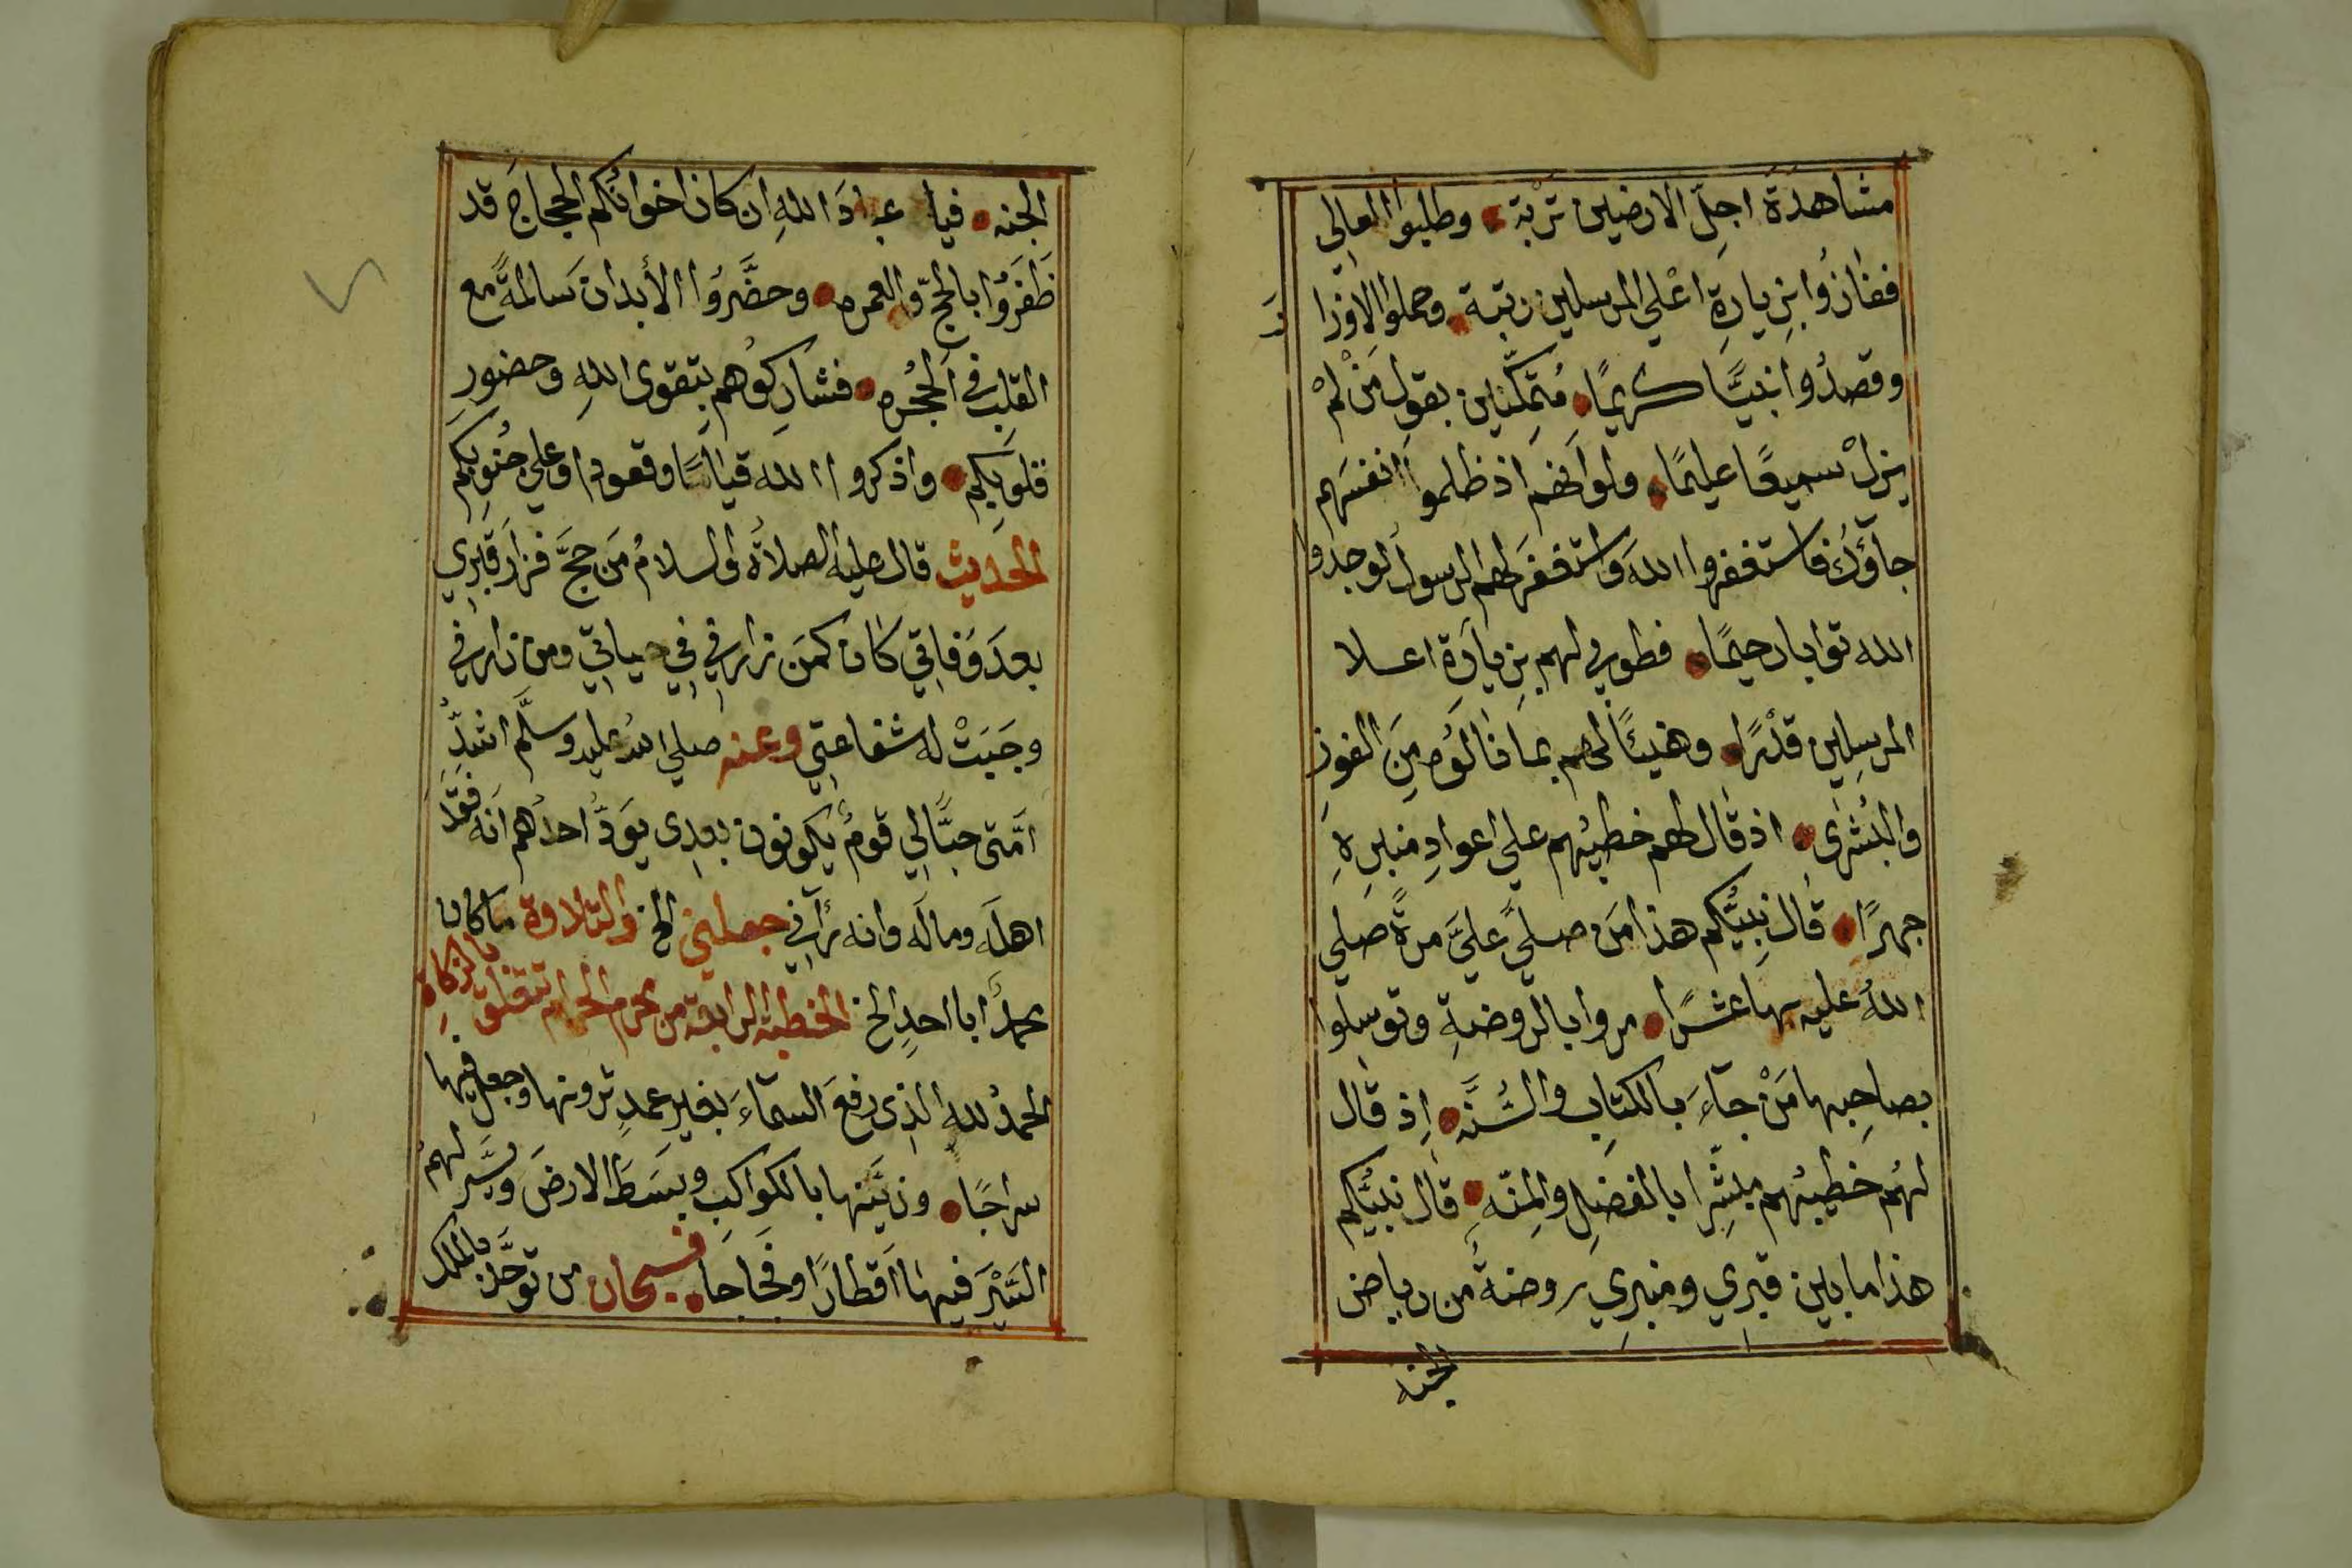 مشاهدَةَ اجلّ الارضين تَرْبة • وطلبوا المعالي
ففازُوا بزيارةِ اعْلي المرسلين رتبة • وحملوا الاوزا
رَ
وقصدُوا نبيًّا كريمًا • مُتمكّنين بقول مَن لمْ
يزلْ سميعًا عليمًا • ولو انهم اذ ظلموا انفسَهم
جآؤكَ فاستغفروا اللهَ واستغفرَ لهم الرسول لوجدوا
الله توابا رحيمًا • فطوبي لهم بزيارَةِ اعلا
المرسلِين قدْرًا • وهنيئًا لهم بما نالوُه مِنَ الفوزِ
والبُشرٰى • اذ قال لهم خطيبُهم علي اعوادِ منبرِهِ
جهرًا • قال نبيُّكم هذا مَن صلي عليَّ مرةً صلي
اللهُ عليه بها عشرًا • مروا بالروضةِ وتوسلوا
بصاحِبها مَنْ جآءَ بالكتابِ والسُّنَّه • اِذ قال
لهُم خطيبُهم مبشِّرا بالفضلِ والمِنّهِ • قال نبيُّكم
هذا ما بين قبري ومنبرِي روضةٌ من رياض
الجنه
الجنه • فيا عبادَ اللهِ ان كان اخوانُكم الحجاجَ قد
ظَفَرُوا بالحجّ والعمره • وحضَّرُوا الأبدان سَالمةً مع
القلبِ في الحُجُره • فشارِكوُهم بِتقوى اللهِ وحضورِ
قلوبِكم • واذكروا الله قيامًا وقعودا وعلي جُنوبِكم
الحديث قال عليه الصلاةُ والسلامُ مَن حجَّ فزار قَبرِي
بعدَ وَفاتِي كان كمَن زارني فِي حياتِي ومن زارني
وجَبَتْ له شفاعتِي وعنه صلي الله عليه وسلَّم اشدُّ
امَّتى حبًّا لِي قومٌ يكونون بعدِى يَودُّ احدُهم انه فَقَدَ
اهلَه ومالَه وانه رآني جعلني الخ والتلاوة ما كان
محمدٌ ابا احدٍ الخ الخطبة الرابعة من محرم الحرام تتعلق بالزكاةِ
الحمدُ لله الذِى رفعَ السمآءَ بغيرِ عمدٍ ترونها وجعل فيها
سراجًا • وزيَّنها بالكواكبِ وبسَطَ الارضَ ويسَّر لهمُ
السَّيْرَ فيها اقطارًا وفجاجا • فسبحان من توحَّد بالملك